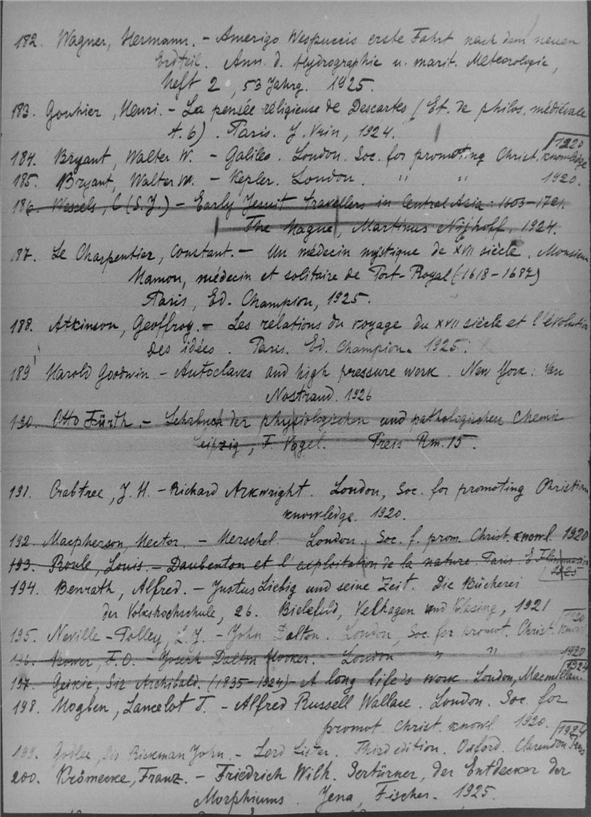 182. Wagner, Hermann. - Amerigo Vespuccis erste Fahrt nach dem neuen
Erdteil. Ann. d. Hydrographie u. marit. Meteorologie,
heft 2, 53 Jahrg. 1925.
183. Gouhier, Henri. - La pensée religieuse de Descartes (Et. de philos. médiévale
t. 6). Paris. J. Vrin, 1924.
184. Bryant, Walter W. - Galileo. London. Soc. for promoting Christ. knowledge 1920
185. Bryant, Walter W. - Kepler. London. " " 1920.
186. Wessels, C (S.J.) - Early Jesuit Travellers in Central Asia: 1603-1721.
The Hague, Martinus Nijhoff, 1924.
187. Le Charpentier, Constant. - Un médecin mystique de XVII siècle. Monsieur
Hamon, médecin et solitaire de Port-Royal (1618-1687)
Paris, Ed. Champion, 1925.
188. Atkinson, Geoffroy. - Les relations du voyage du XVII siècle et l'évolution
des idées. Paris. Ed. Champion. 1925.
189 Harold Goodwin - Autoclaves and high pressure work. New York: Van
Nostrand. 1926
190. Otto Fürth - Lehrbuch der physiologischen und pathologischen Chemie
Leipzig, F. Vogel. Press Rm. 15.
191. Crabtree, J. H. - Richard Arkwright. London, Soc. for promoting Christian
knowledge. 1920.
192. Macpherson, Hector. - Herschel. London. Soc. f. prom. Christ. knowl. 1920
193. Roule, Louis. - Daubenton et l'exploitation de la nature. Paris. E. Flammarion
1925
194. Benrath, Alfred. - Justus Liebig und seine Zeit. Die Bücherei
der Volkshochschule, 26. Bielefeld, Velhagen und Klasing, 1921
195. Neville-Polley, L. J. - John Dalton. London, Soc. for promot. Christ. knowl. 1920
196. Bower, F. O. - Joseph Dalton Hooker. London " " 1920
197. Geikie, Sir Archibald. (1835-1924) - A long life's work. London, Macmillan. 1924
198. Hogben, Lancelot T. - Alfred Russell Wallace. London. Soc. for
promot. Christ. knowl. 1920.
199. Godlee, Sir Rickman John. - Lord Lister. Third edition. Oxford. Clarendon Press 1924
200. Brömecke, Franz. - Friedrich Wilh. Sertürner, der Entdecker der
Morphiums. Jena, Fischer. 1925.